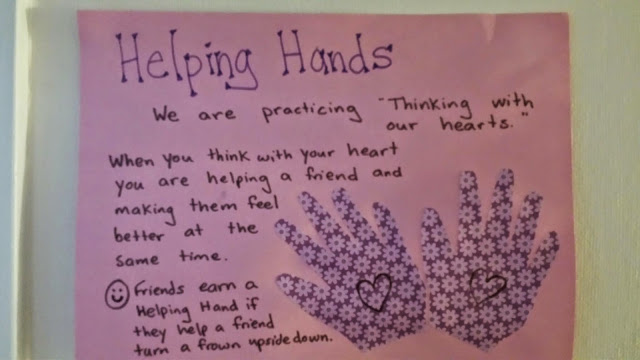 Helping Hands
We are practicing "Thinking with
our hearts."
When you think with your heart
you are helping a friend and
making them feel
better at the
same time.
Friends earn a
Helping Hand if
they help a friend
turn a frown upside down.